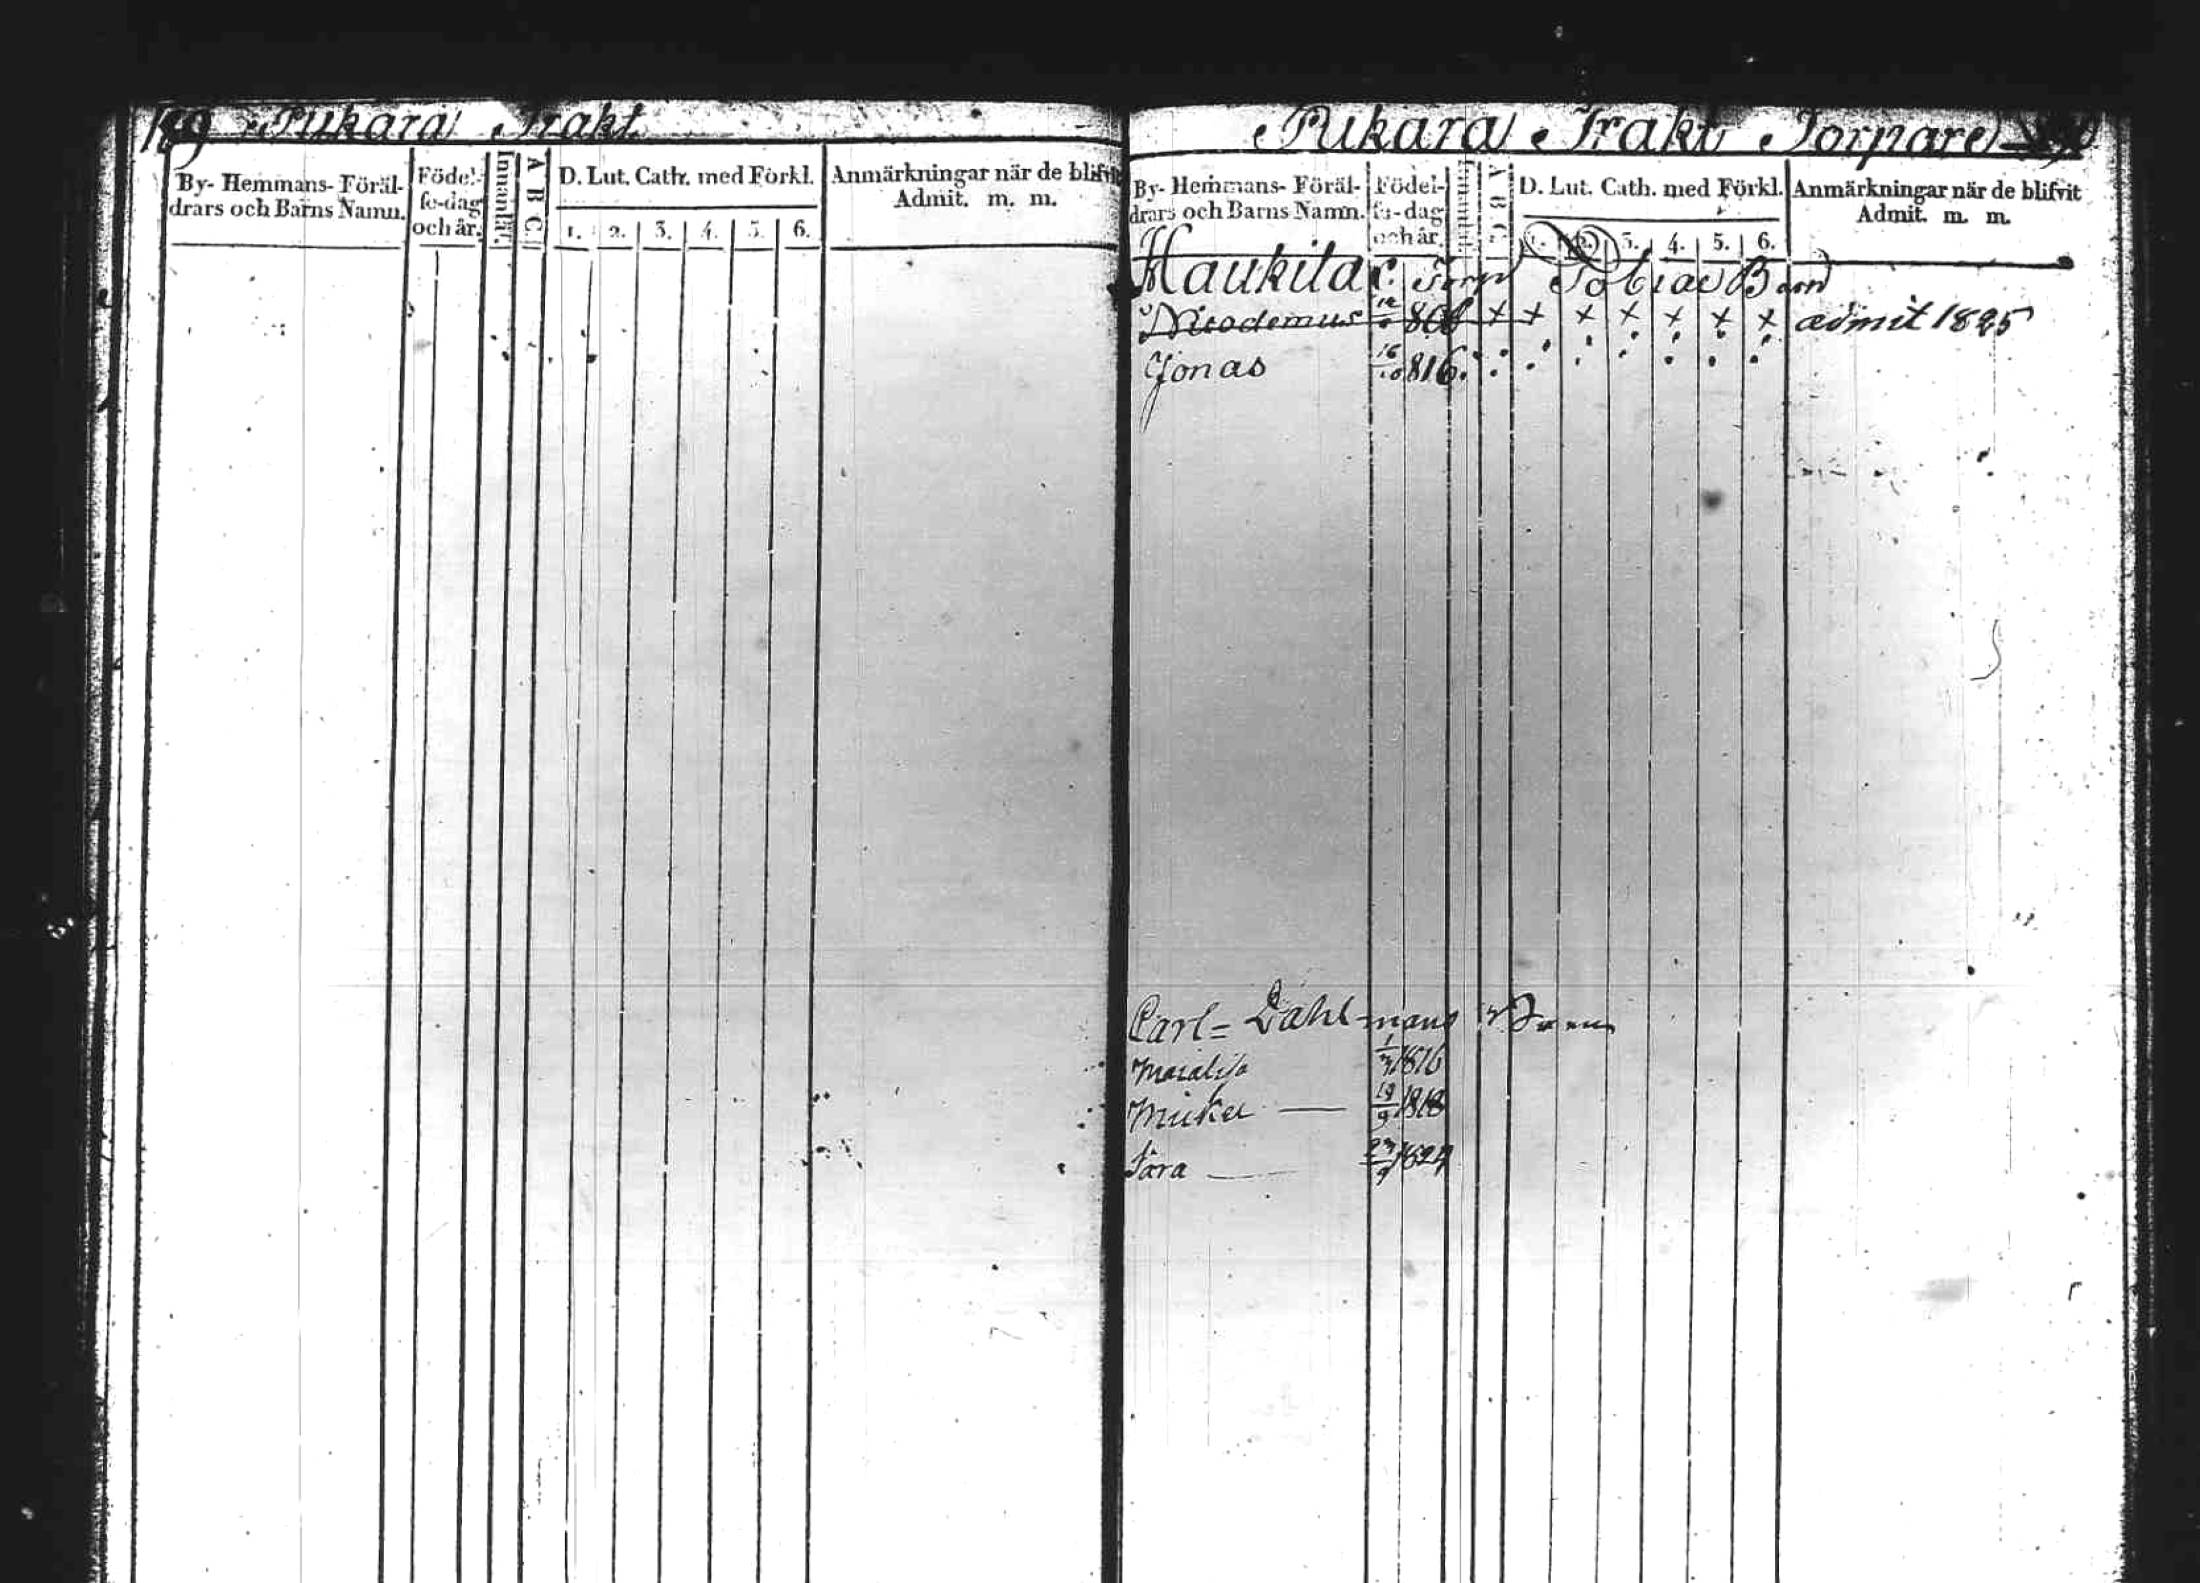 189 Pukara Trakt
By- Hemmans- Föräl-
drars och Barns Namn.
Födel-
se-dag
och år.
Innanläs.
A B C
D. Lut. Cath. med Förkl.
1. 2. 3. 4. 5. 6.
Anmärkningar när de blifvit
Admit. m. m.
Pukara Trakt Torpare
By- Hemmans- Föräl-
drars och Barns Namn.
Födel-
se-dag
och år.
A B C
D. Lut. Cath. med Förkl.
1. 2. 3. 4. 5. 6.
Anmärkningar när de blifvit
Admit. m. m.
Haukila Torp Tobias Barn
Nicodemus x x x x x x x admit 1825
Jonas 16/10 816
Carl Dahlmans Barn
Maialisa 1/3 1816
Mickel 19/9 1818
Sara 23/9 1824